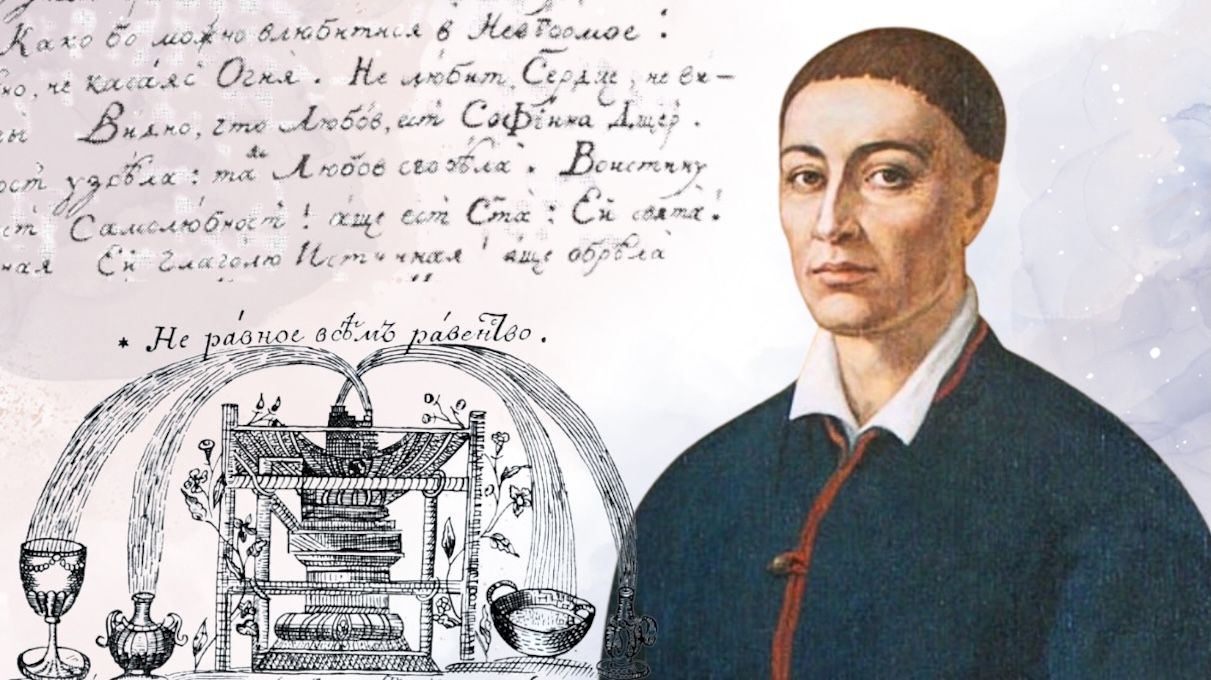 Како бо можно влюбитися в Невѣдомое :
не касаяс Огня . Не любит Сердце, не ви-
Видно, что Любов, ест Софіина Дщер .
узрѣла : та Любов сгорѣла . Воистину
Самолюбност ! аще ест Ста : Ей свята !
ная Ей глаголю Истинная ! аще обрѣла
* Не ра́вное всѣ́мъ ра́венство .